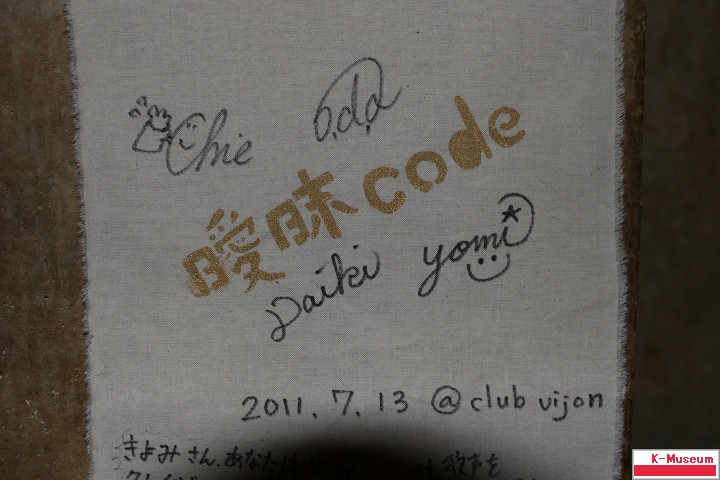 Chie
o.d.d
曖昧code
Daiki
yomi
2011.7.13 @club vijon
きよみさん、あなたは 歌声を
K-Museum